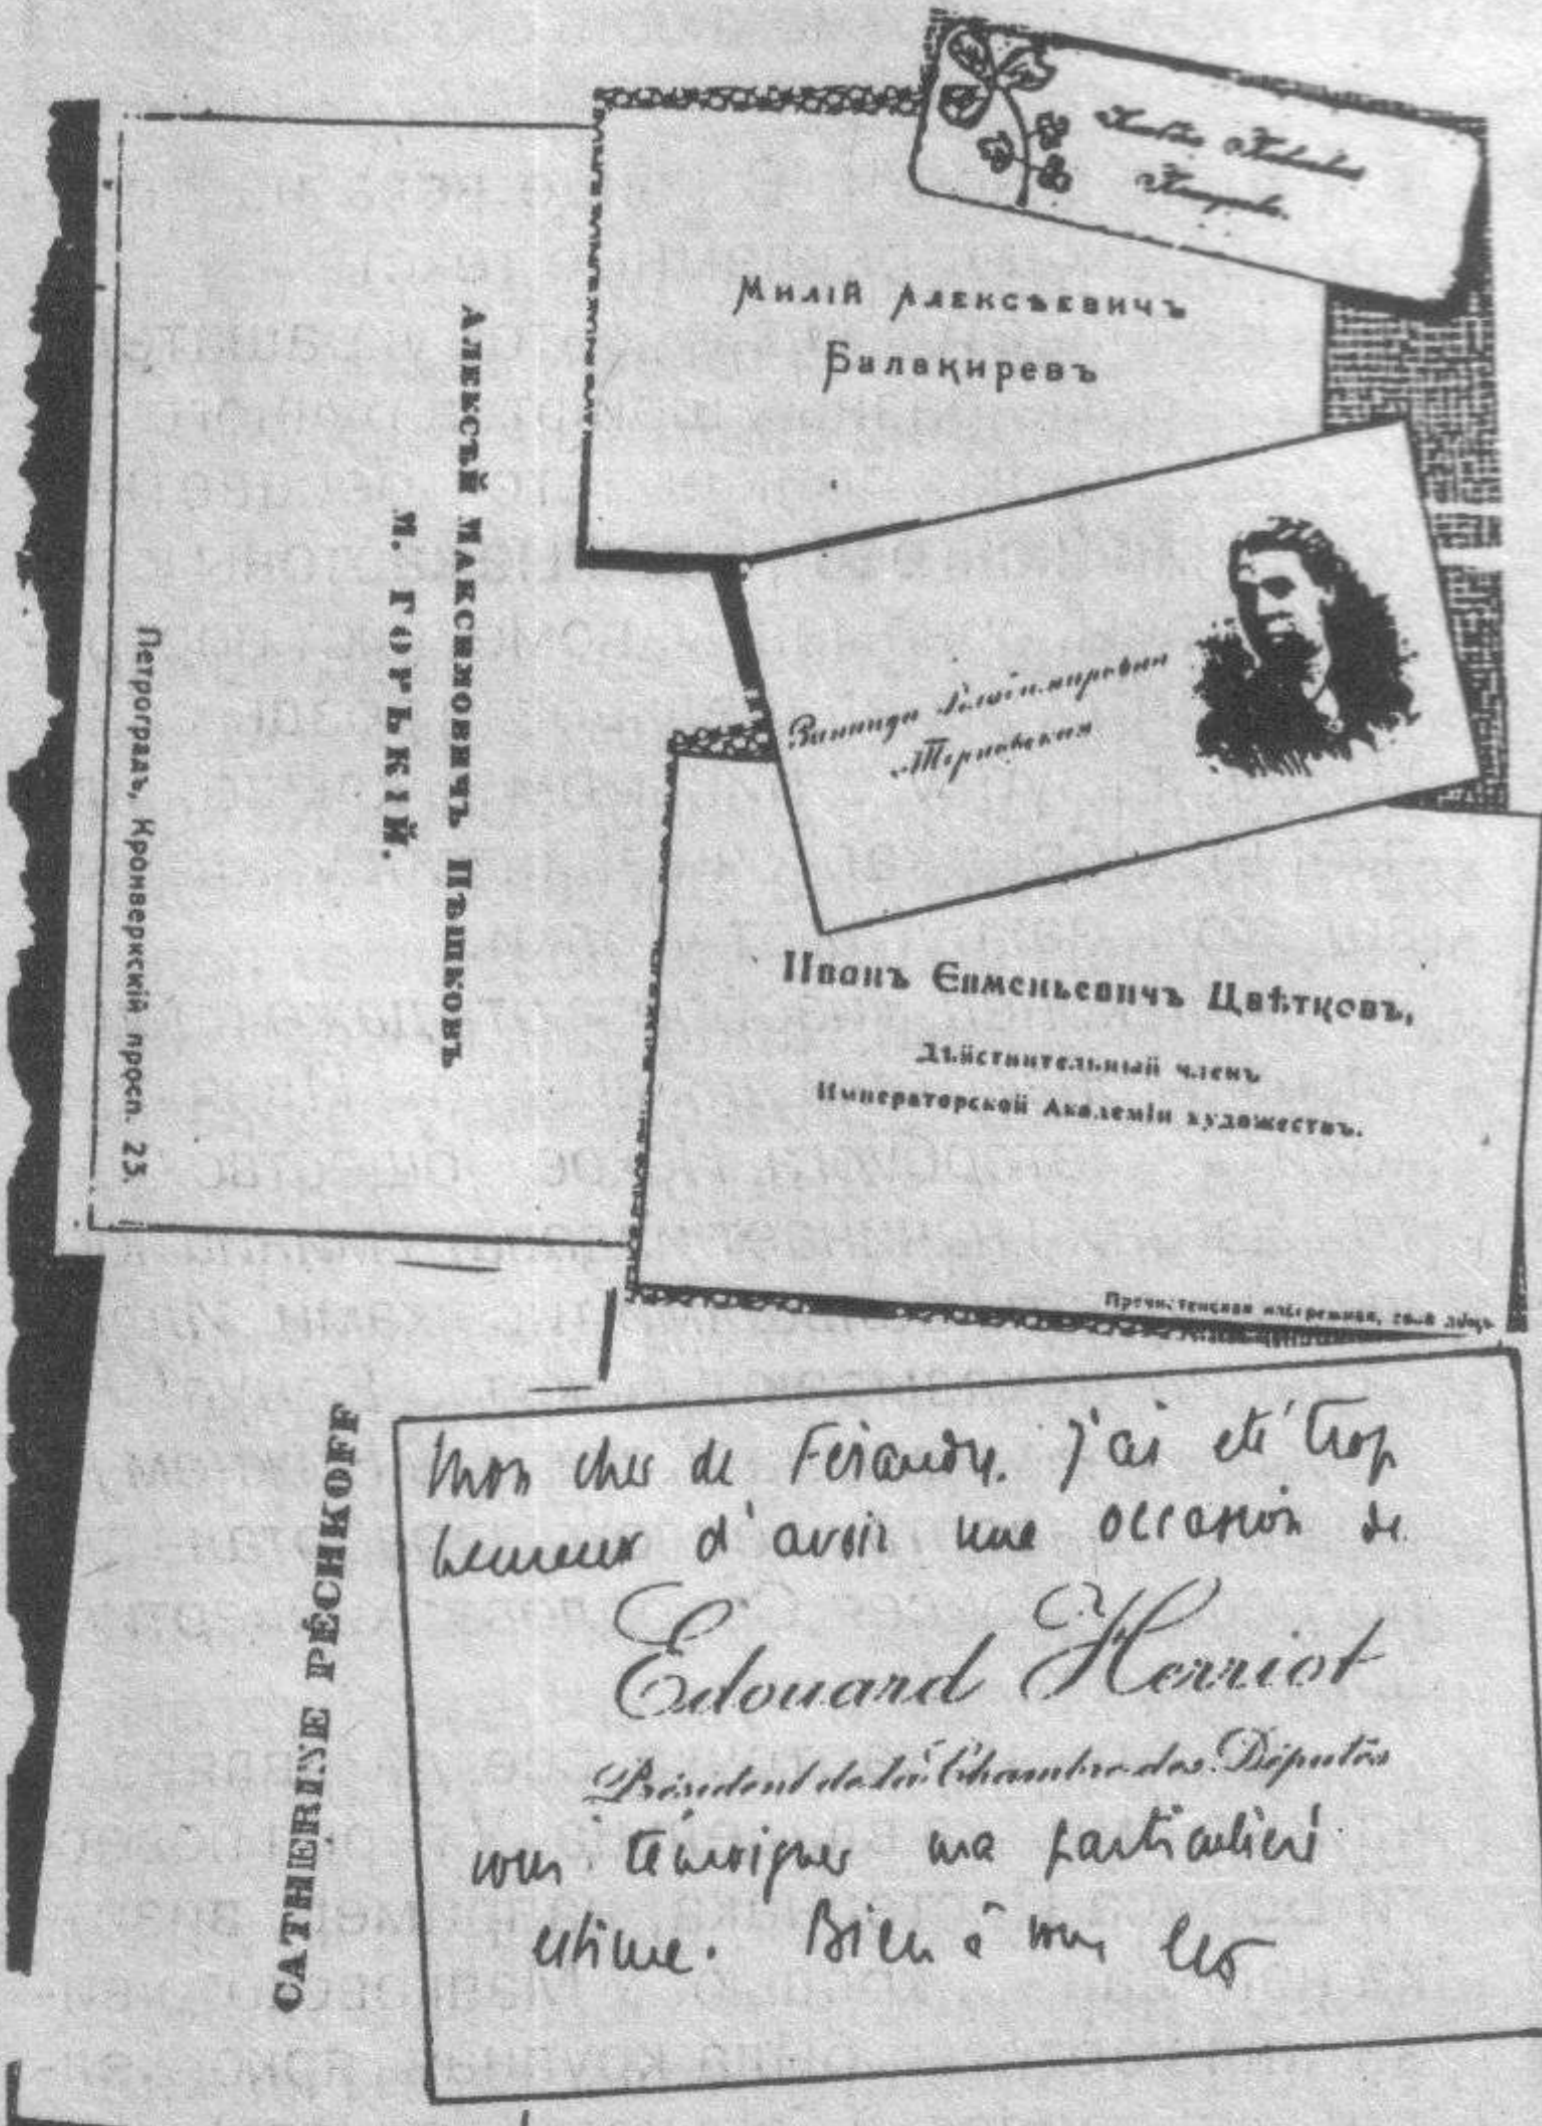 Милій Алексѣевичъ
Балакиревъ
Алексѣй Максимовичъ Пѣшковъ
М. ГОРЬКІЙ.
Петроградъ, Кронверкскій просп. 23.
Зинаида Владимировна
Терновская
Иванъ Евменьевичъ Цвѣтковъ,
Дѣйствительный членъ
Императорской Академіи художествъ.
Пречистенская набережная, домъ
CATHERINE PÉCHKOFF
Mon cher de J'ai été trop
heureux d'avoir une occasion de
Edouard Herriot
Président de la Chambre des Députés
vous témoigner ma particulière
estime. Bien à vous